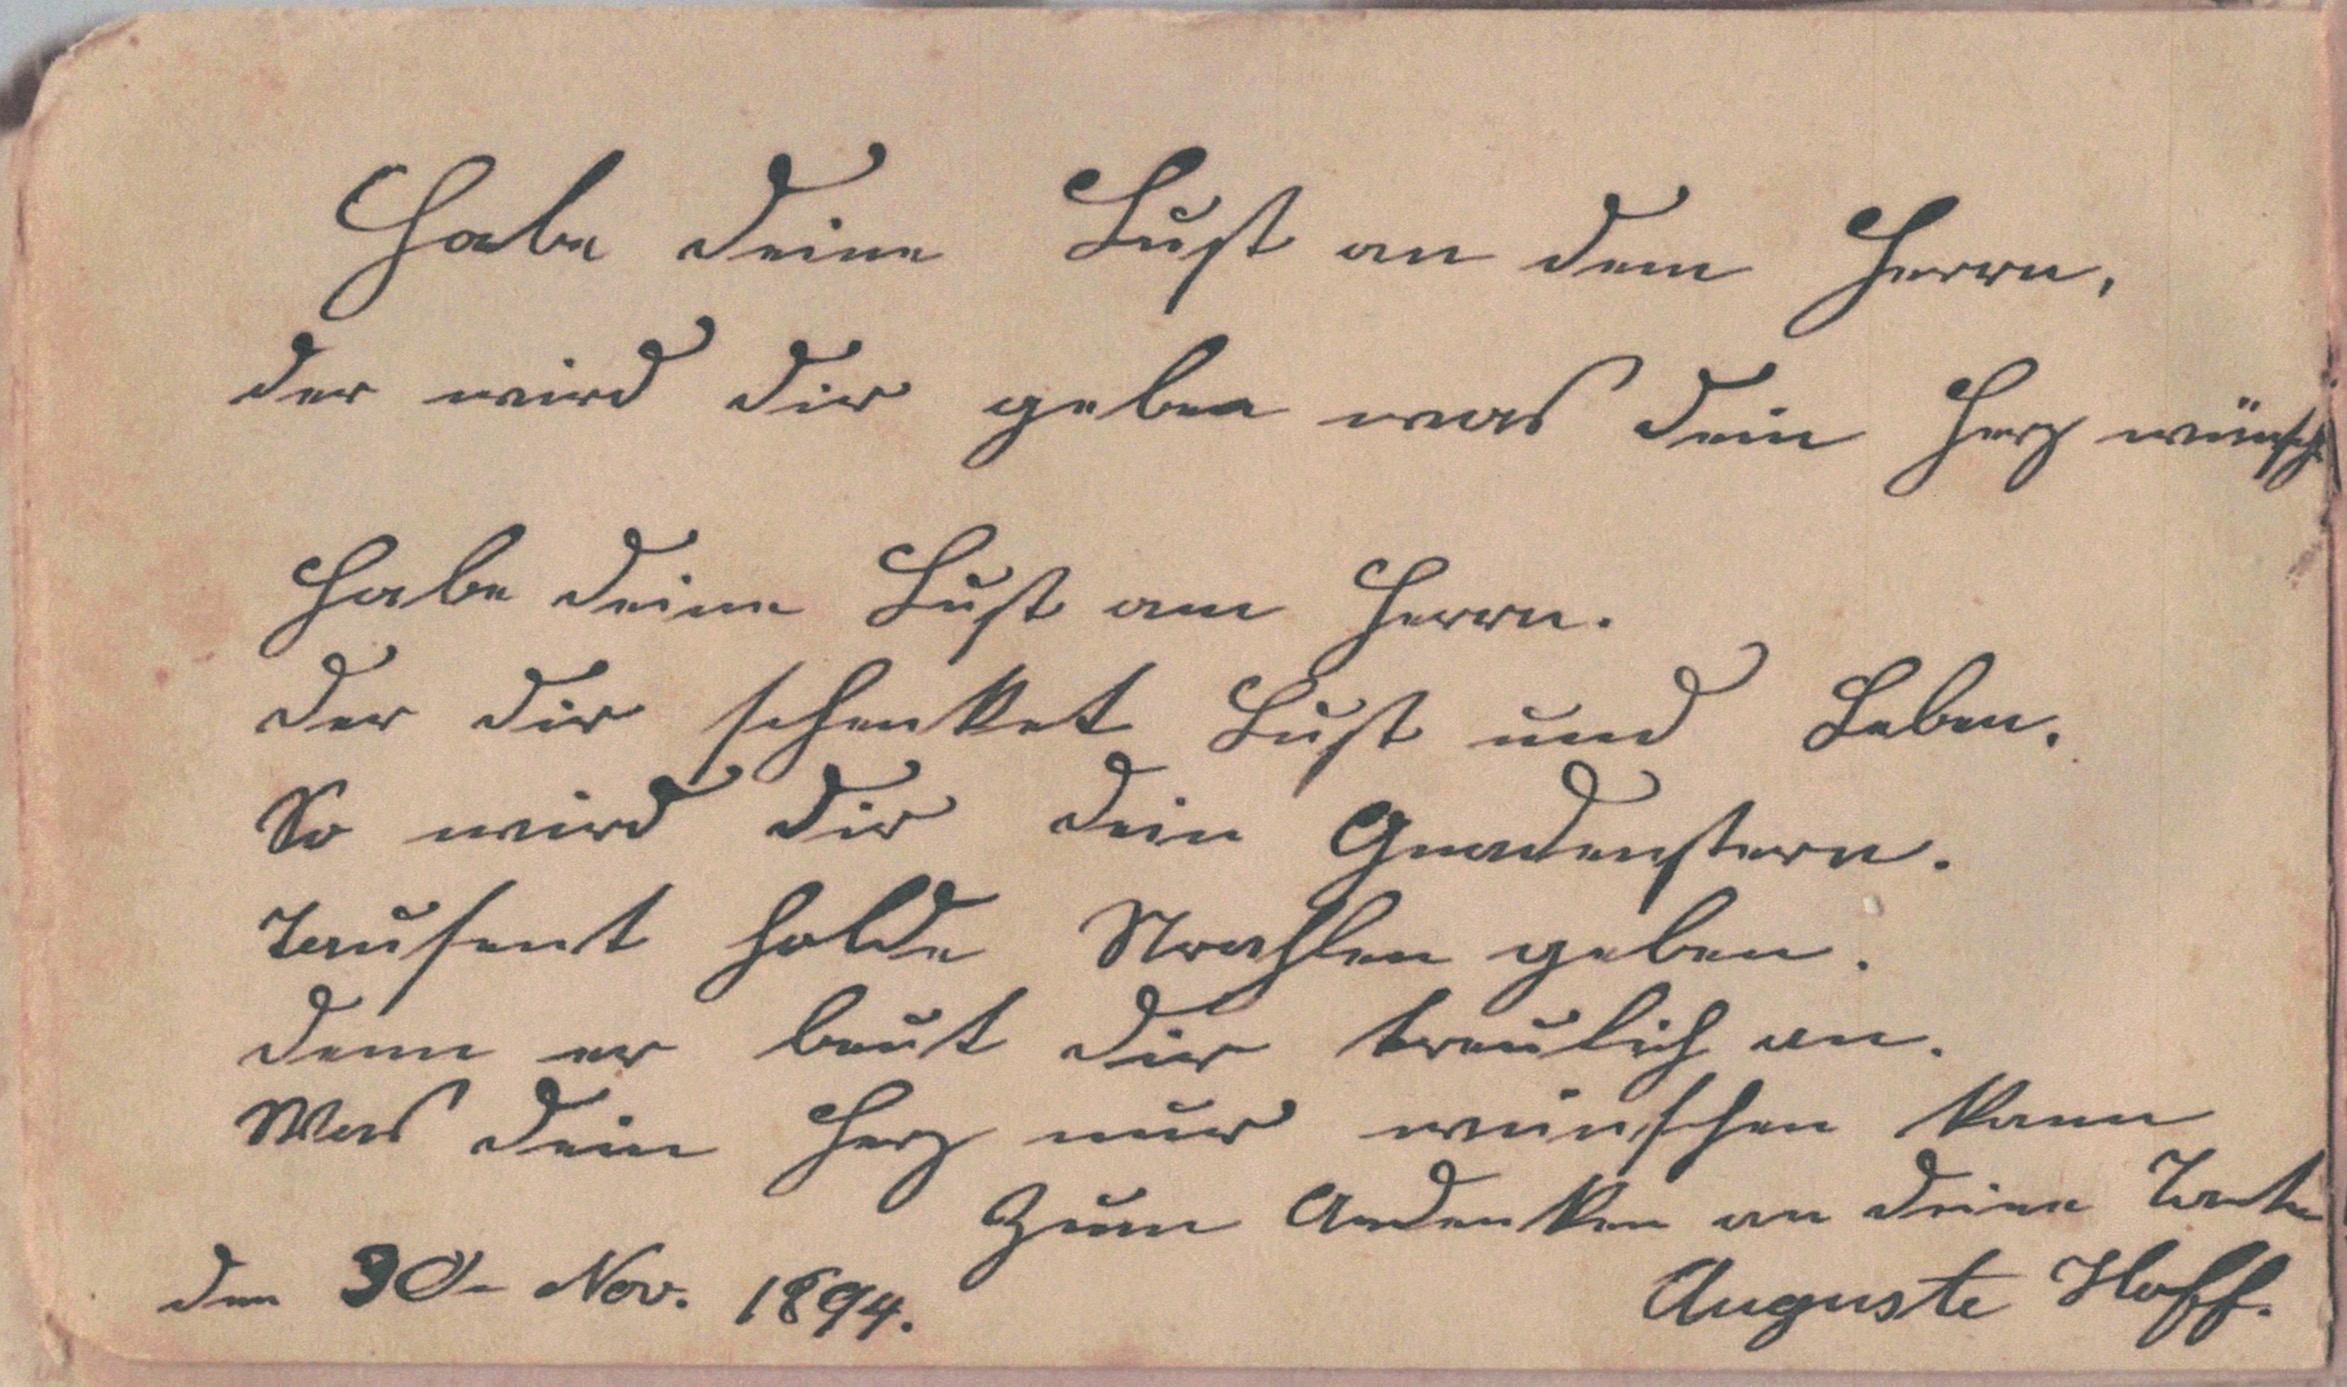 Habe deine Lust an dem Herrn,
der wird dir geben was dein Herz wünsch
Habe deine Lust am Herrn.
Der dir schenket Lust und Leben.
So wird dir dein Gnadenstern.
Tausent holde Strahlen geben.
denn er beut dir treulich an.
Was dein Herz nur wünschen kann
Zum Andenken an deine Tante
den 30. Nov. 1894.
Auguste Hoff.